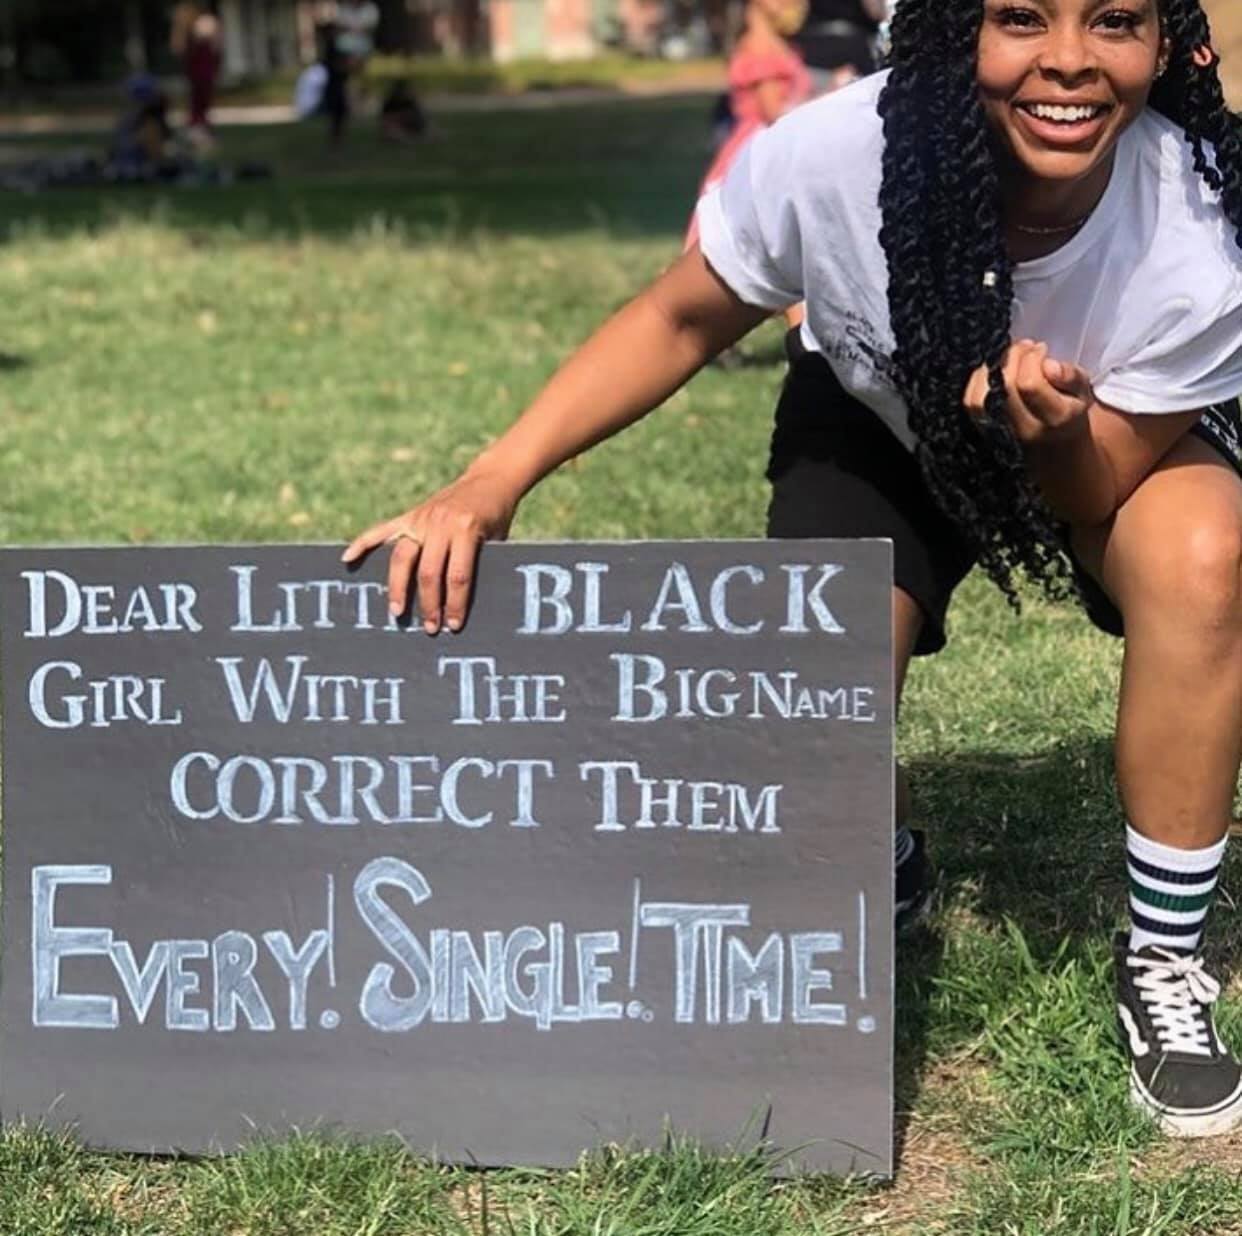 DEAR LITTLE BLACK
GIRL WITH THE BIG NAME
CORRECT THEM
EVERY! SINGLE! TIME!